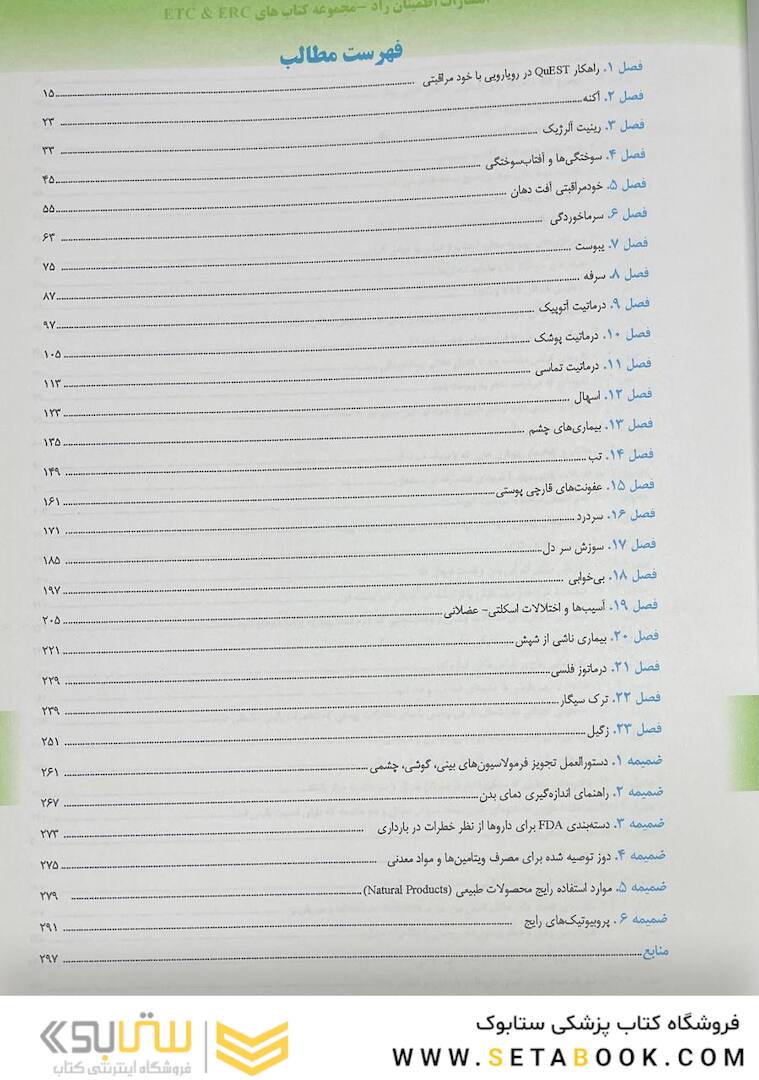 انتشارات اطمینان راد - مجموعه کتاب های ETC & ERC
فهرست مطالب
فصل ۱. راهکار QuEST در رویارویی با خود مراقبتی ........ ۱۵
فصل ۲. آکنه ........ ۲۳
فصل ۳. رینیت آلرژیک ........ ۳۳
فصل ۴. سوختگی‌ها و آفتاب‌سوختگی ........ ۴۵
فصل ۵. خودمراقبتی آفت دهان ........ ۵۵
فصل ۶. سرماخوردگی ........ ۶۳
فصل ۷. یبوست ........ ۷۵
فصل ۸. سرفه ........ ۸۷
فصل ۹. درماتیت آتوپیک ........ ۹۷
فصل ۱۰. درماتیت پوشک ........ ۱۰۵
فصل ۱۱. درماتیت تماسی ........ ۱۱۳
فصل ۱۲. اسهال ........ ۱۲۳
فصل ۱۳. بیماری‌های چشم ........ ۱۳۵
فصل ۱۴. تب ........ ۱۴۹
فصل ۱۵. عفونت‌های قارچی پوستی ........ ۱۶۱
فصل ۱۶. سردرد ........ ۱۷۱
فصل ۱۷. سوزش سر دل ........ ۱۸۵
فصل ۱۸. بی‌خوابی ........ ۱۹۷
فصل ۱۹. آسیب‌ها و اختلالات اسکلتی- عضلانی ........ ۲۰۵
فصل ۲۰. بیماری ناشی از شپش ........ ۲۲۱
فصل ۲۱. درماتوز فلسی ........ ۲۲۹
فصل ۲۲. ترک سیگار ........ ۲۳۹
فصل ۲۳. زگیل ........ ۲۵۱
ضمیمه ۱. دستورالعمل تجویز فرمولاسیون‌های بینی، گوشی، چشمی ........ ۲۶۱
ضمیمه ۲. راهنمای اندازه‌گیری دمای بدن ........ ۲۶۷
ضمیمه ۳. دسته‌بندی FDA برای داروها از نظر خطرات در بارداری ........ ۲۷۳
ضمیمه ۴. دوز توصیه شده برای مصرف ویتامین‌ها و مواد معدنی ........ ۲۷۵
ضمیمه ۵. موارد استفاده رایج محصولات طبیعی (Natural Products) ........ ۲۷۹
ضمیمه ۶. پروبیوتیک‌های رایج ........ ۲۹۱
منابع ........ ۲۹۷
فروشگاه کتاب پزشکی ستابوک
WWW.SETABOOK.COM
ستابوک
فروشگاه اینترنتی کتاب